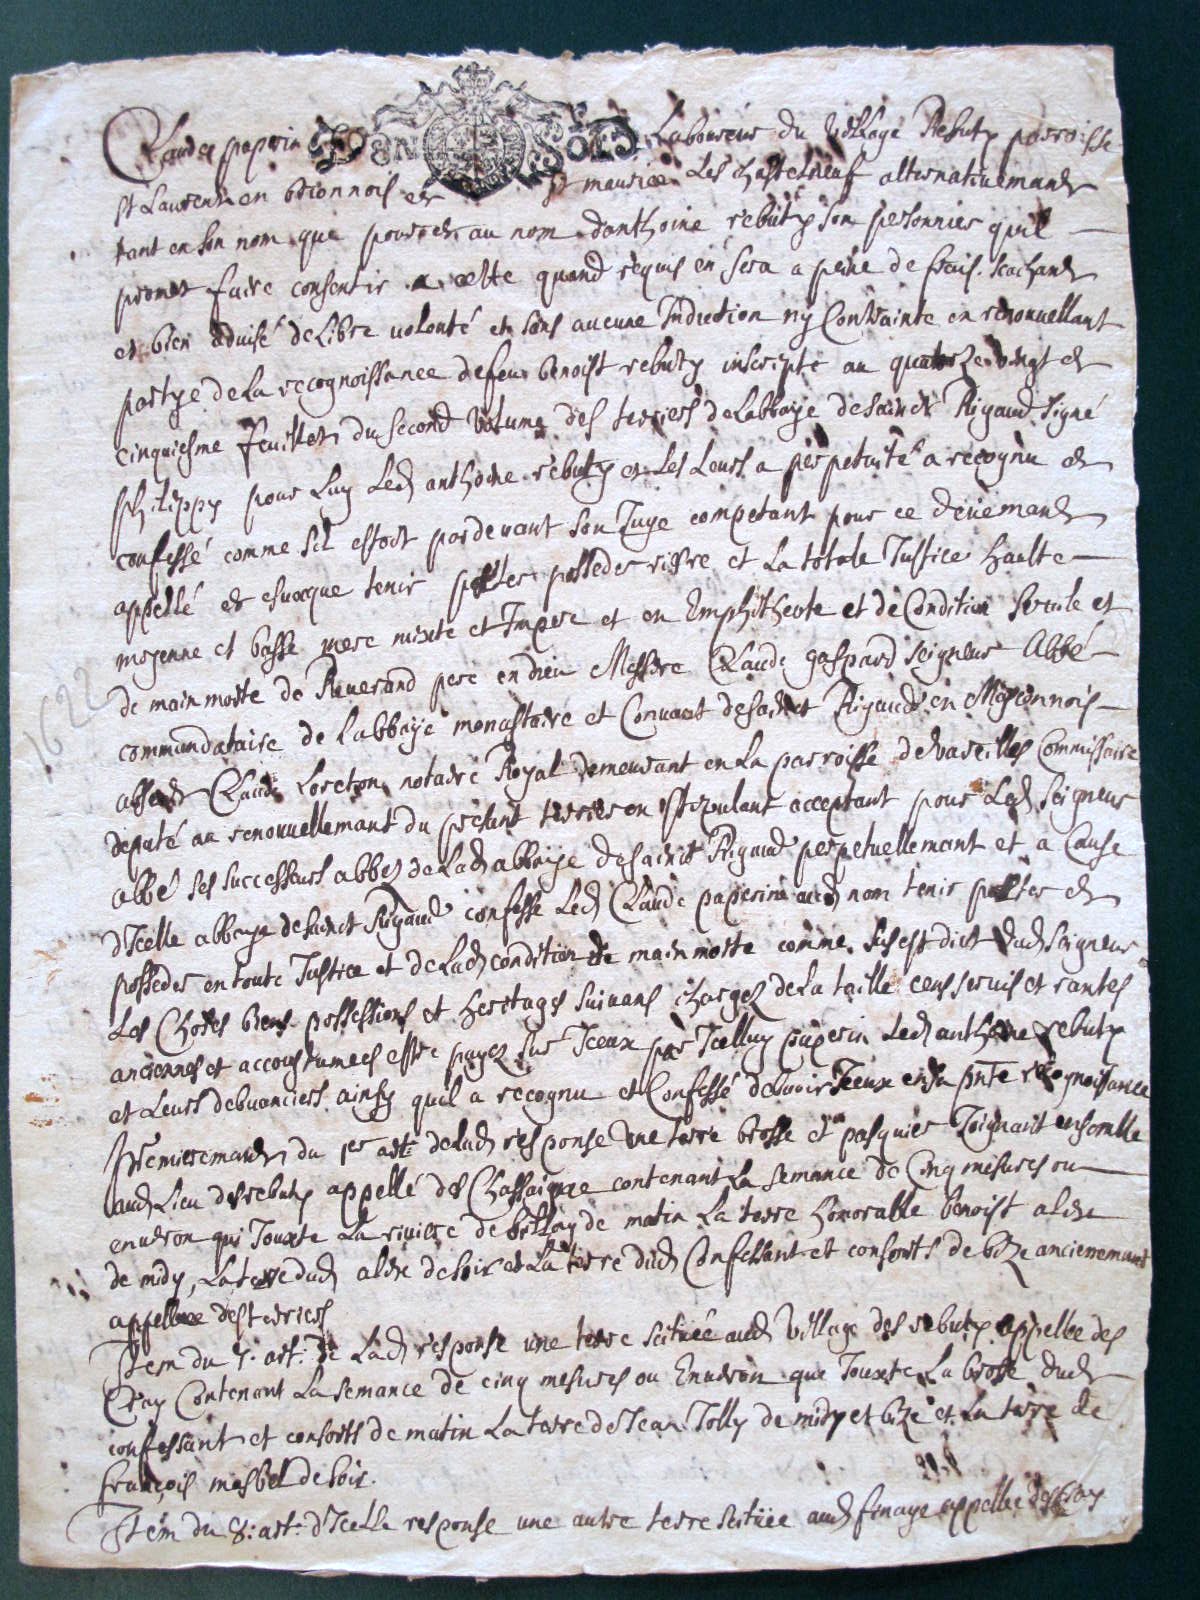 Claude paperin Laboureur du Village Rebuty parroisse
St Laurent en brionnois et St maurice Les chastelneuf alternativemant
tant en son nom que pour et au nom d'anthoine rebuty son personnier quil
promet faire consentir a cette quand requis en sera a peine de frais. scachant
et bien advisé de libre volonté et sans aucune Induction ny Contrainte en renouvellant
partye de La recognoissance de feu benoist rebuty inscripte au quatre vingt et
cinquiesme feuillet du second Volume des terriers de Labbaye de sainct Rigaud signé
philippy pour Luy Led anthoine rebuty et Les Leurs a perpetuité a recognu et
confessé comme sil estoit pardevant son Juge competant pour ce
appellé et tenir porter posseder et La totale Justice haulte
moyenne et basse mere mixte et Impere et en Emphitheote et de Condition servile et
de main morte de Reverand pere en dieu Messire Claude gaspard seigneur Abbé
commandataire de Labbaye monastaire et Convant de sainct Rigaud en Masconnois
absent Claude Loreton notaire Royal demeurant en La parroisse de vareilles Commissaire
deputé au renouvellemant du présent terrier en stipulant acceptant pour Led Seigneur
abbé ses successeurs abbez de Lad abbaye de sainct Rigaud perpetuellemant et a Cause
d'Icelle abbaye de sainct Rigaud confesse Led Claude paperin aud nom tenir porter et
posseder en toute Justice et de Lad condition de main morte comme sus est dict dud seigneur
Les Choses biens possessions et heritages suivans chargez de La taille cens servis et rantes
anciennes et accoustumees estre payez sur Iceux par Icelluy paperin Led anthoine rebuty
et Leurs devanciers ainsy quil a recognu et Confessé debvoir Iceux en sa pnte recognoissance
Premieremant du 1er art: de Lad response Une terre brosse et pasquier Joignant ensemble
aud Lieu des rebuty appellé des Chassaigne contenant La semance de Cinq mesures ou
environ qui Jouxte La riviere de de matin La terre honorable benoist
de midy, La terre dud de soir et La terre dud Confessant et consorts de bize anciennemant
appellee des terriers
Item du 7. art: de Lad response une terre scituée aud Village des rebuty appellee des
Cray Contenant La semance de cinq mesures ou Environ qui Jouxte La brosse dud
confessant et consorts de matin La terre de Jean Jolly de midy et bize et La terre de
françois de soir.
Item du 8. art: d'Icelle response une autre terre scituée aud finage appellee des Cray
1622